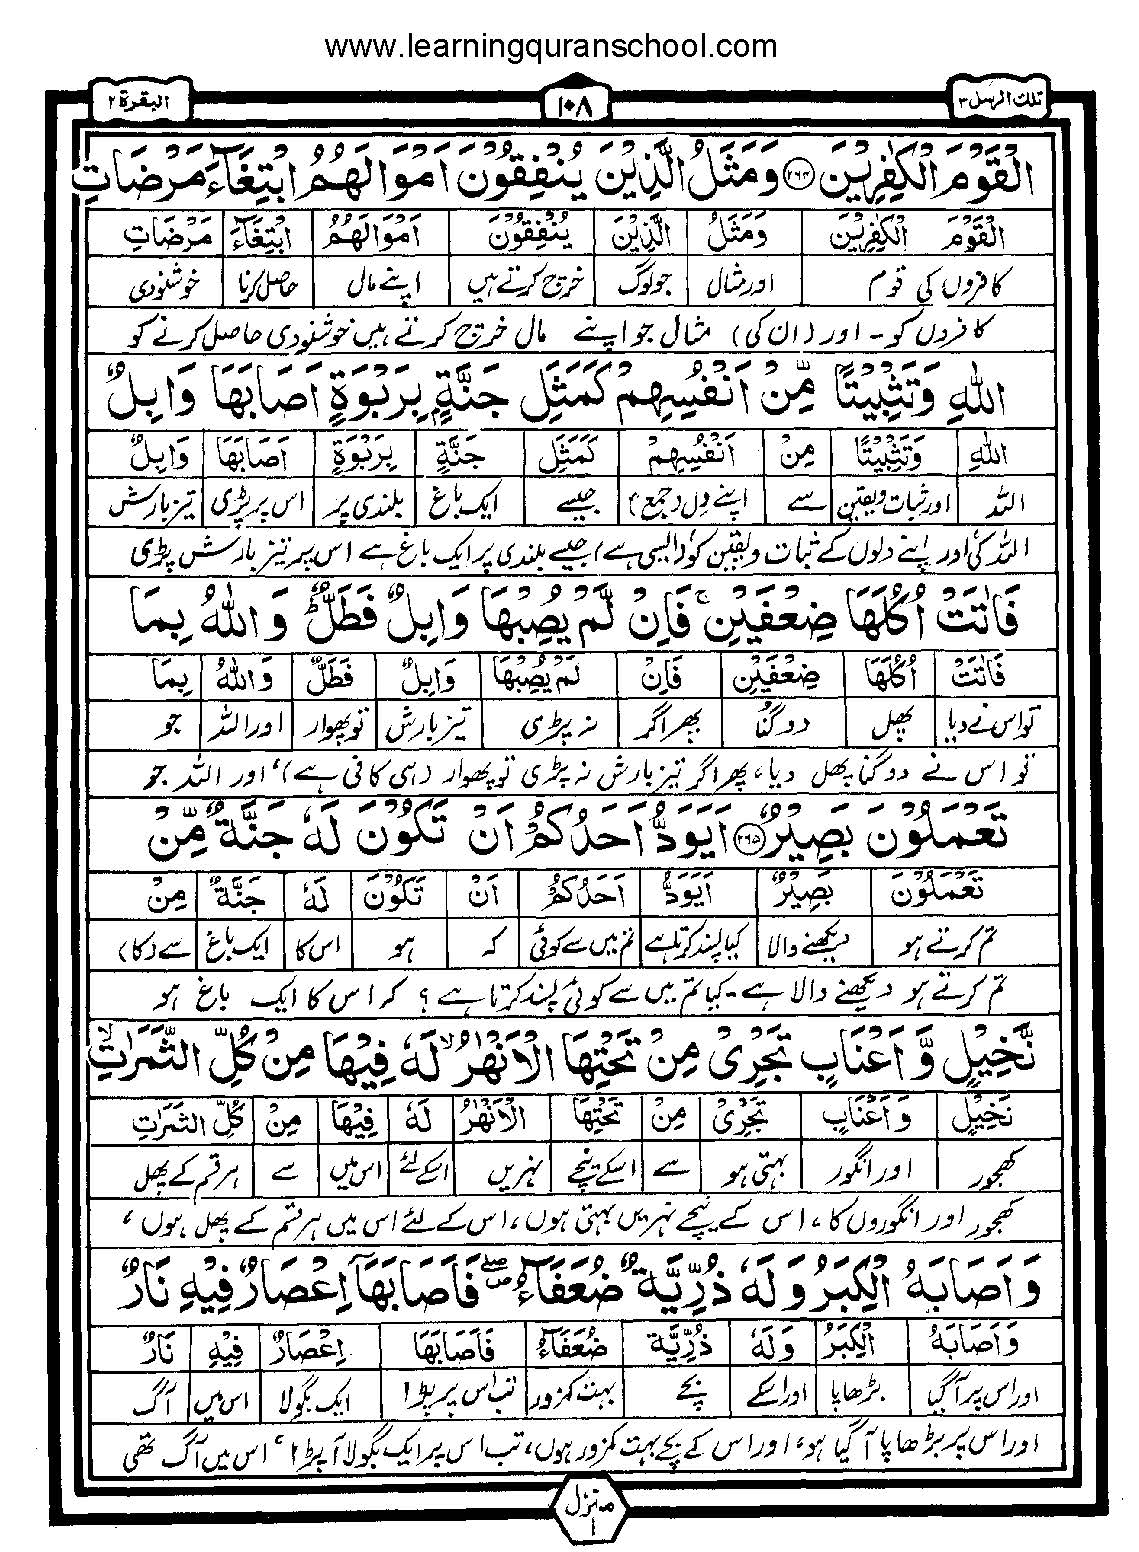 www.learningquranschool.com
تلك الرسل ٣ ١٠٨ البقرة ٢
الْقَوْمَ الْكٰفِرِيْنَ ﴿٢٦٤﴾ وَمَثَلُ الَّذِيْنَ يُنْفِقُوْنَ اَمْوَالَهُمُ ابْتِغَآءَ مَرْضَاتِ
الْقَوْمَ الْكٰفِرِيْنَ وَمَثَلُ الَّذِيْنَ يُنْفِقُوْنَ اَمْوَالَهُمُ ابْتِغَآءَ مَرْضَاتِ
کافروں کی قوم اور مثال جو لوگ خرچ کرتے ہیں اپنے مال حاصل کرنا خوشنودی
کافروں کو۔ اور (ان کی) مثال جو اپنے مال خرچ کرتے ہیں خوشنودی حاصل کرنے کو
اللهِ وَتَثْبِيْتًا مِّنْ اَنْفُسِهِمْ كَمَثَلِ جَنَّةٍۭ بِرَبْوَةٍ اَصَابَهَا وَابِلٌ
اللهِ وَتَثْبِيْتًا مِنْ اَنْفُسِهِمْ كَمَثَلِ جَنَّةٍ بِرَبْوَةٍ اَصَابَهَا وَابِلٌ
اللہ اور ثبات و یقین سے اپنے دل (جمع) جیسے ایک باغ بلندی پر اس پر پڑی تیز بارش
اللہ کی اور اپنے دلوں کے ثبات و یقین کو (ایسی ہے) جیسے بلندی پر ایک باغ ہے اس پر تیز بارش پڑی
فَاٰتَتْ اُكُلَهَا ضِعْفَيْنِ ۚ فَاِنْ لَّمْ يُصِبْهَا وَابِلٌ فَطَلٌّ ؕ وَاللهُ بِمَا
فَاٰتَتْ اُكُلَهَا ضِعْفَيْنِ فَاِنْ لَمْ يُصِبْهَا وَابِلٌ فَطَلٌّ وَاللهُ بِمَا
تو اس نے دیا پھل دوگنا پھر اگر نہ پڑی تیز بارش تو پھوار اور اللہ جو
تو اس نے دوگنا پھل دیا، پھر اگر تیز بارش نہ پڑی تو پھوار (ہی کافی ہے)، اور اللہ جو
تَعْمَلُوْنَ بَصِيْرٌ ﴿٢٦٥﴾ اَيَوَدُّ اَحَدُكُمْ اَنْ تَكُوْنَ لَهٗ جَنَّةٌ مِّنْ
تَعْمَلُوْنَ بَصِيْرٌ اَيَوَدُّ اَحَدُكُمْ اَنْ تَكُوْنَ لَهٗ جَنَّةٌ مِنْ
تم کرتے ہو دیکھنے والا کیا پسند کرتا ہے تم میں سے کوئی کہ ہو اس کا ایک باغ سے (کا)
تم کرتے ہو دیکھنے والا ہے۔ کیا تم میں سے کوئی پسند کرتا ہے؟ کہ اس کا ایک باغ ہو
نَّخِيْلٍ وَّاَعْنَابٍ تَجْرِيْ مِنْ تَحْتِهَا الْاَنْهٰرُ ۙ لَهٗ فِيْهَا مِنْ كُلِّ الثَّمَرٰتِ ۙ
نَخِيْلٍ وَاَعْنَابٍ تَجْرِيْ مِنْ تَحْتِهَا الْاَنْهٰرُ لَهٗ فِيْهَا مِنْ كُلِّ الثَّمَرٰتِ
کھجور اور انگور بہتی ہو سے اسکے نیچے نہریں اسکے لئے اس میں سے ہر قسم کے پھل
کھجور اور انگوروں کا، اس کے نیچے نہریں بہتی ہوں، اس کے لئے اس میں ہر قسم کے پھل ہوں،
وَاَصَابَهُ الْكِبَرُ وَلَهٗ ذُرِّيَّةٌ ضُعَفَآءُ ۖ فَاَصَابَهَآ اِعْصَارٌ فِيْهِ نَارٌ
وَاَصَابَهُ الْكِبَرُ وَلَهٗ ذُرِّيَّةٌ ضُعَفَآءُ فَاَصَابَهَا اِعْصَارٌ فِيْهِ نَارٌ
اور اس پر آگیا بڑھاپا اور اسکے بچے بہت کمزور تب اس پر پڑا ایک بگولا اس میں آگ
اور اس پر بڑھاپا آ گیا ہو، اور اس کے بچے بہت کمزور ہوں، تب اس پر ایک بگولا آپڑا، اس میں آگ تھی
منزل ١